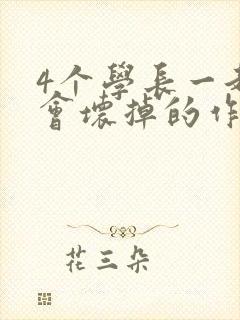 4个學長一
會壞掉的作
花三朵